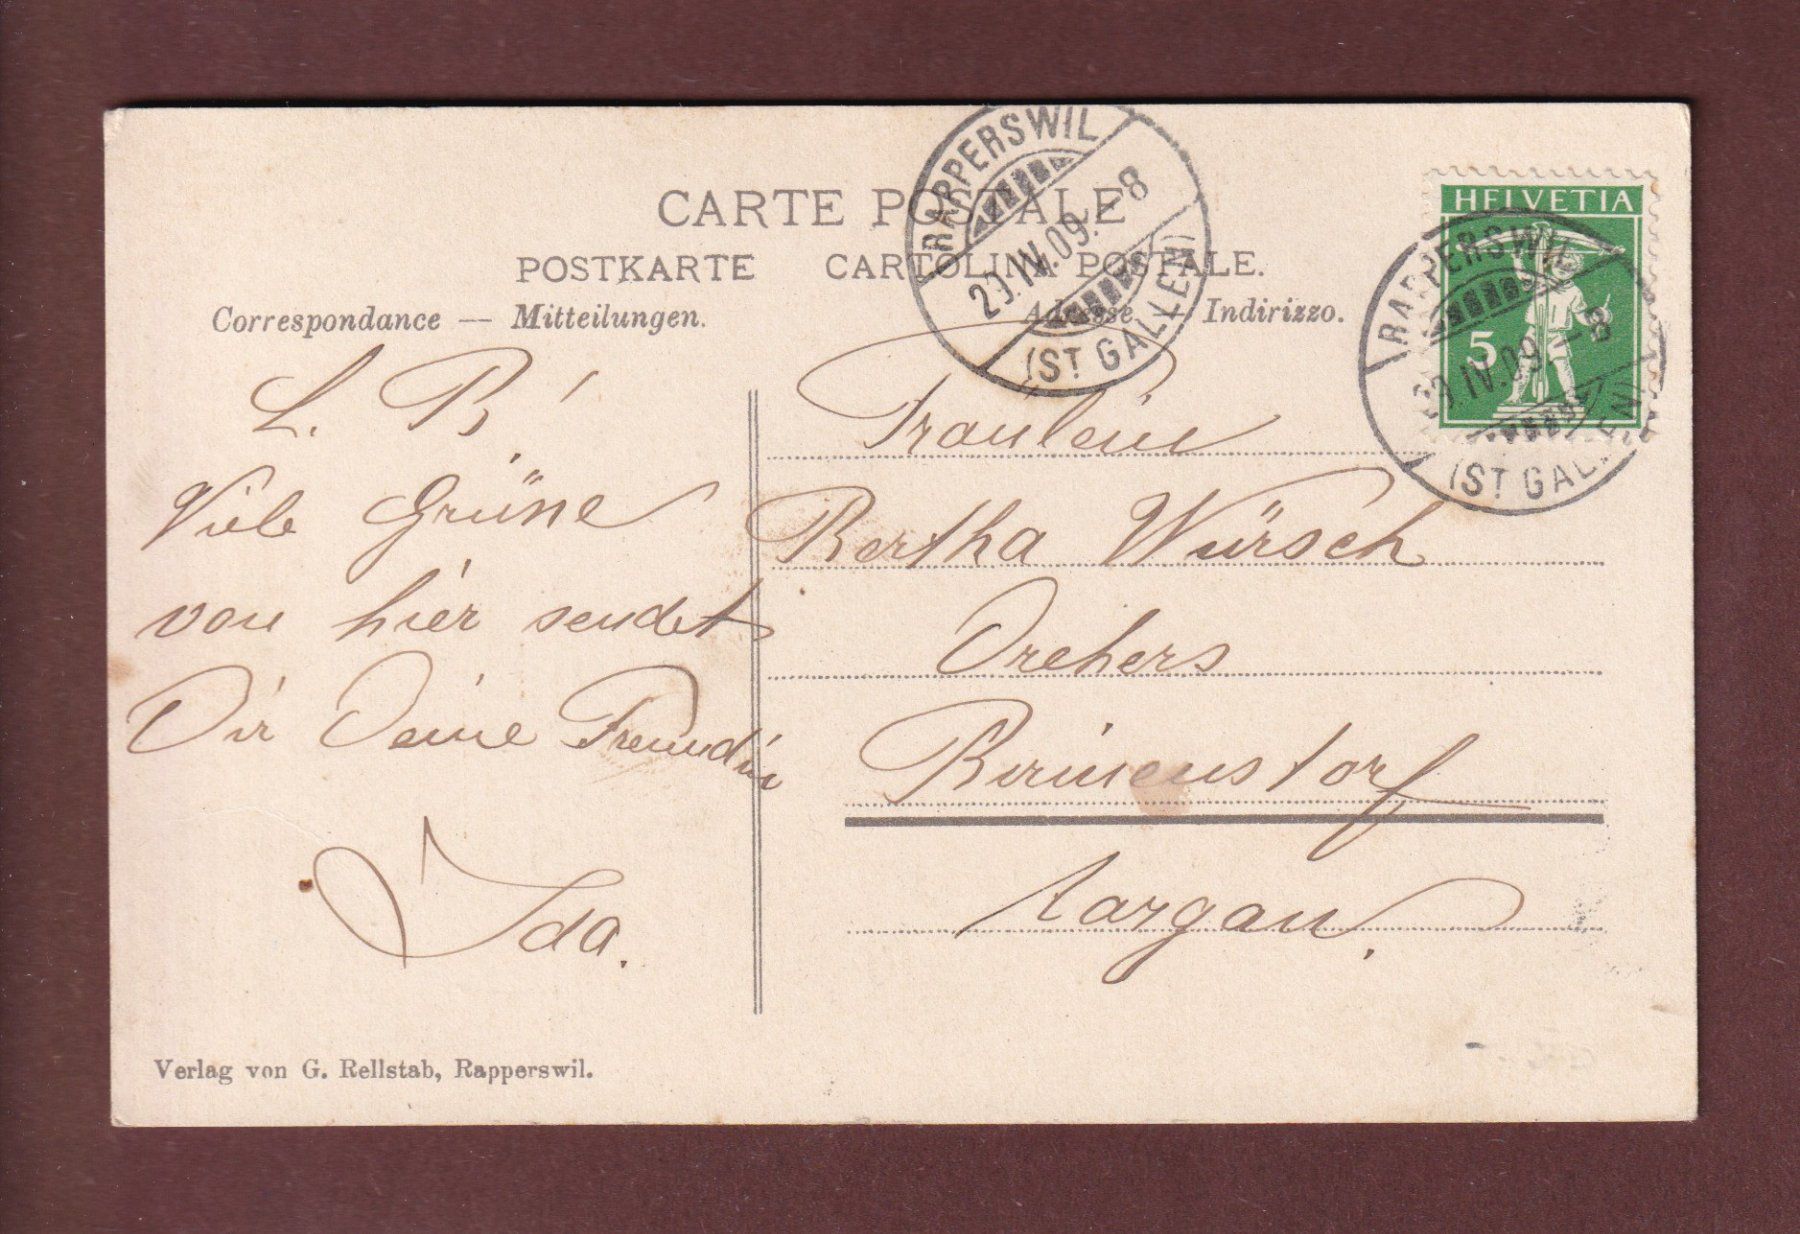 CARTE POSTALE
POSTKARTE CARTOLINA POSTALE.
Correspondance — Mitteilungen.
Adresse — Indirizzo.
RAPPERSWIL
29.IV.09.–8
(ST GALLEN)
HELVETIA
5
RAPPERSWIL
29.IV.09–8
(ST GALLEN)
L. B!
Viele Grüsse
von hier sendet
Dir Deine Freundin
Ida.
Fräulein
Bertha Würsch
Drehers
Birmenstorf
Aargau.
Verlag von G. Rellstab, Rapperswil.